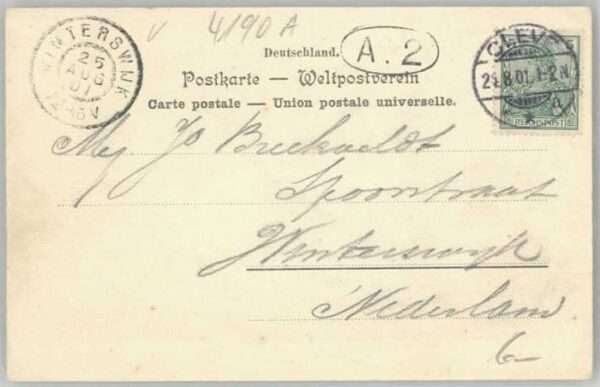 4190 A
WINTERSWIJK
25
AUG
01
Deutschland.
A. 2
Postkarte — Weltpostverein
Carte postale — Union postale universelle.
CLEVE
8.01. 1-2 N
a
REICHSPOST
Mej Jo
Spoorstraat
Winterswijk
Nederland
6